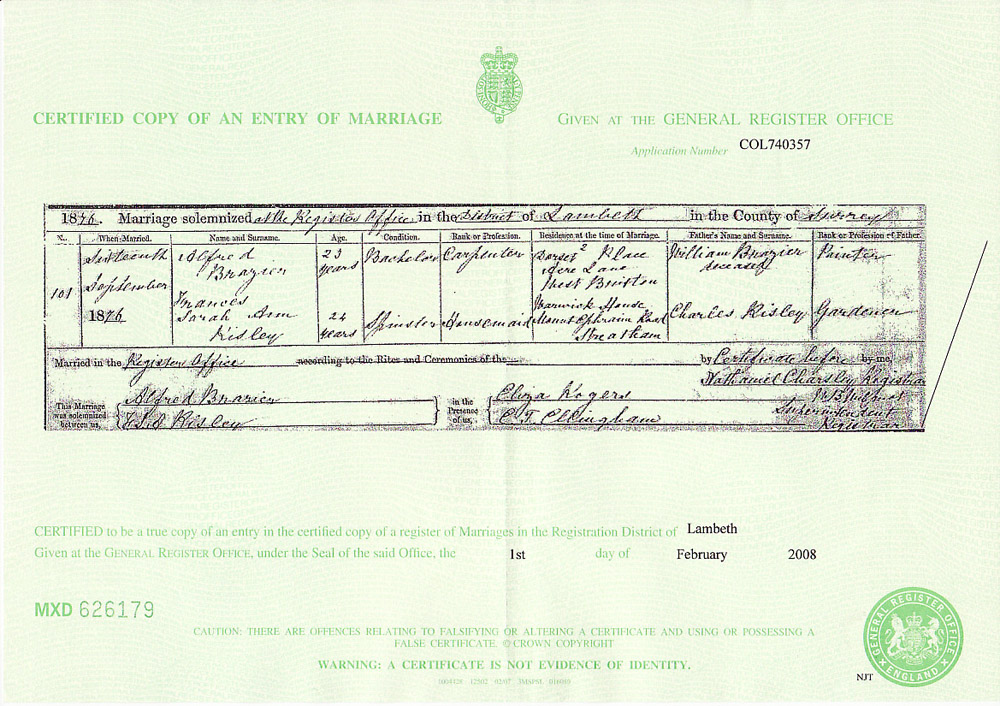 CERTIFIED COPY OF AN ENTRY OF MARRIAGE
GIVEN AT THE GENERAL REGISTER OFFICE
Application Number COL740357
1876. Marriage solemnized at the Register Office in the District of Lambeth in the County of Surrey
No. When Married. Name and Surname. Age. Condition. Rank or Profession. Residence at the time of Marriage. Father's Name and Surname. Rank or Profession of Father.
101 Sixteenth September 1876
Alfred Brazier 23 years Bachelor Carpenter 2 Dorset Place Acre Lane West Brixton William Brazier deceased Painter
Frances Sarah Ann Risley 24 years Spinster Housemaid Warwick House Mount Ephraim Road Streatham Charles Risley Gardener
Married in the Register Office according to the Rites and Ceremonies of the by Certificate before by me,
This Marriage was solemnized between us,
Alfred Brazier
F.S.A. Risley
in the Presence of us,
Eliza Rogers
C.T. Ellingham
Nathaniel Charsley Registrar
Superintendent
Registrar
CERTIFIED to be a true copy of an entry in the certified copy of a register of Marriages in the Registration District of Lambeth
Given at the GENERAL REGISTER OFFICE, under the Seal of the said Office, the 1st day of February 2008
MXD 626179
CAUTION: THERE ARE OFFENCES RELATING TO FALSIFYING OR ALTERING A CERTIFICATE AND USING OR POSSESSING A
FALSE CERTIFICATE. © CROWN COPYRIGHT
WARNING: A CERTIFICATE IS NOT EVIDENCE OF IDENTITY.
GENERAL REGISTER OFFICE
ENGLAND
NJT